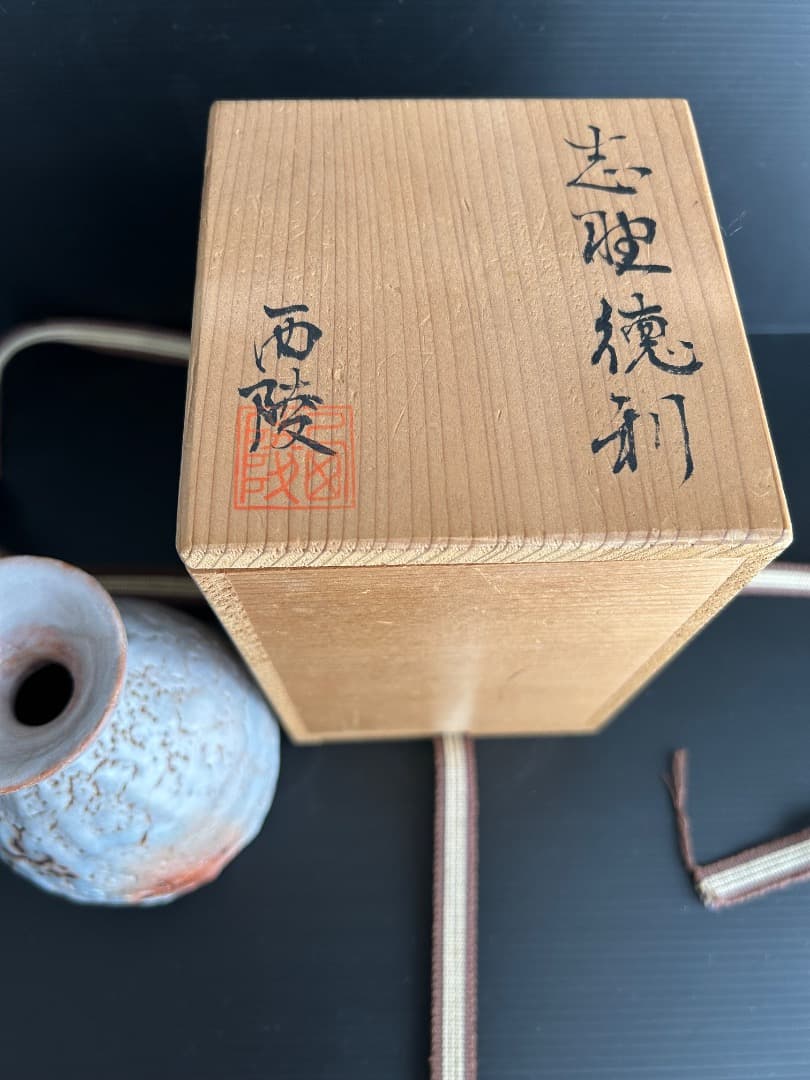 志野徳利
西陵